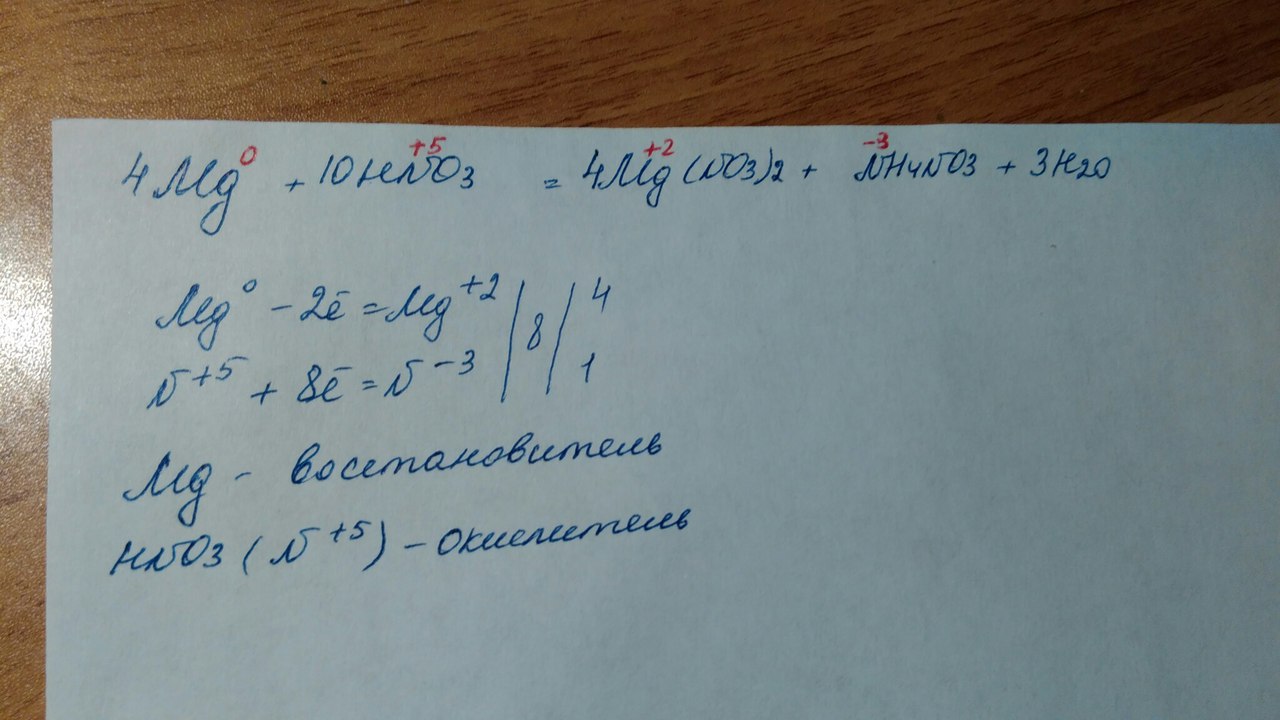 4Mg⁰ + 10HN⁺⁵O₃ = 4Mg⁺²(NO₃)₂ + N⁻³H₄NO₃ + 3H₂O
Mg⁰ - 2ē = Mg⁺² | 8 | 4
N⁺⁵ + 8ē = N⁻³ | | 1
Mg - восстановитель
HNO₃ (N⁺⁵) - окислитель